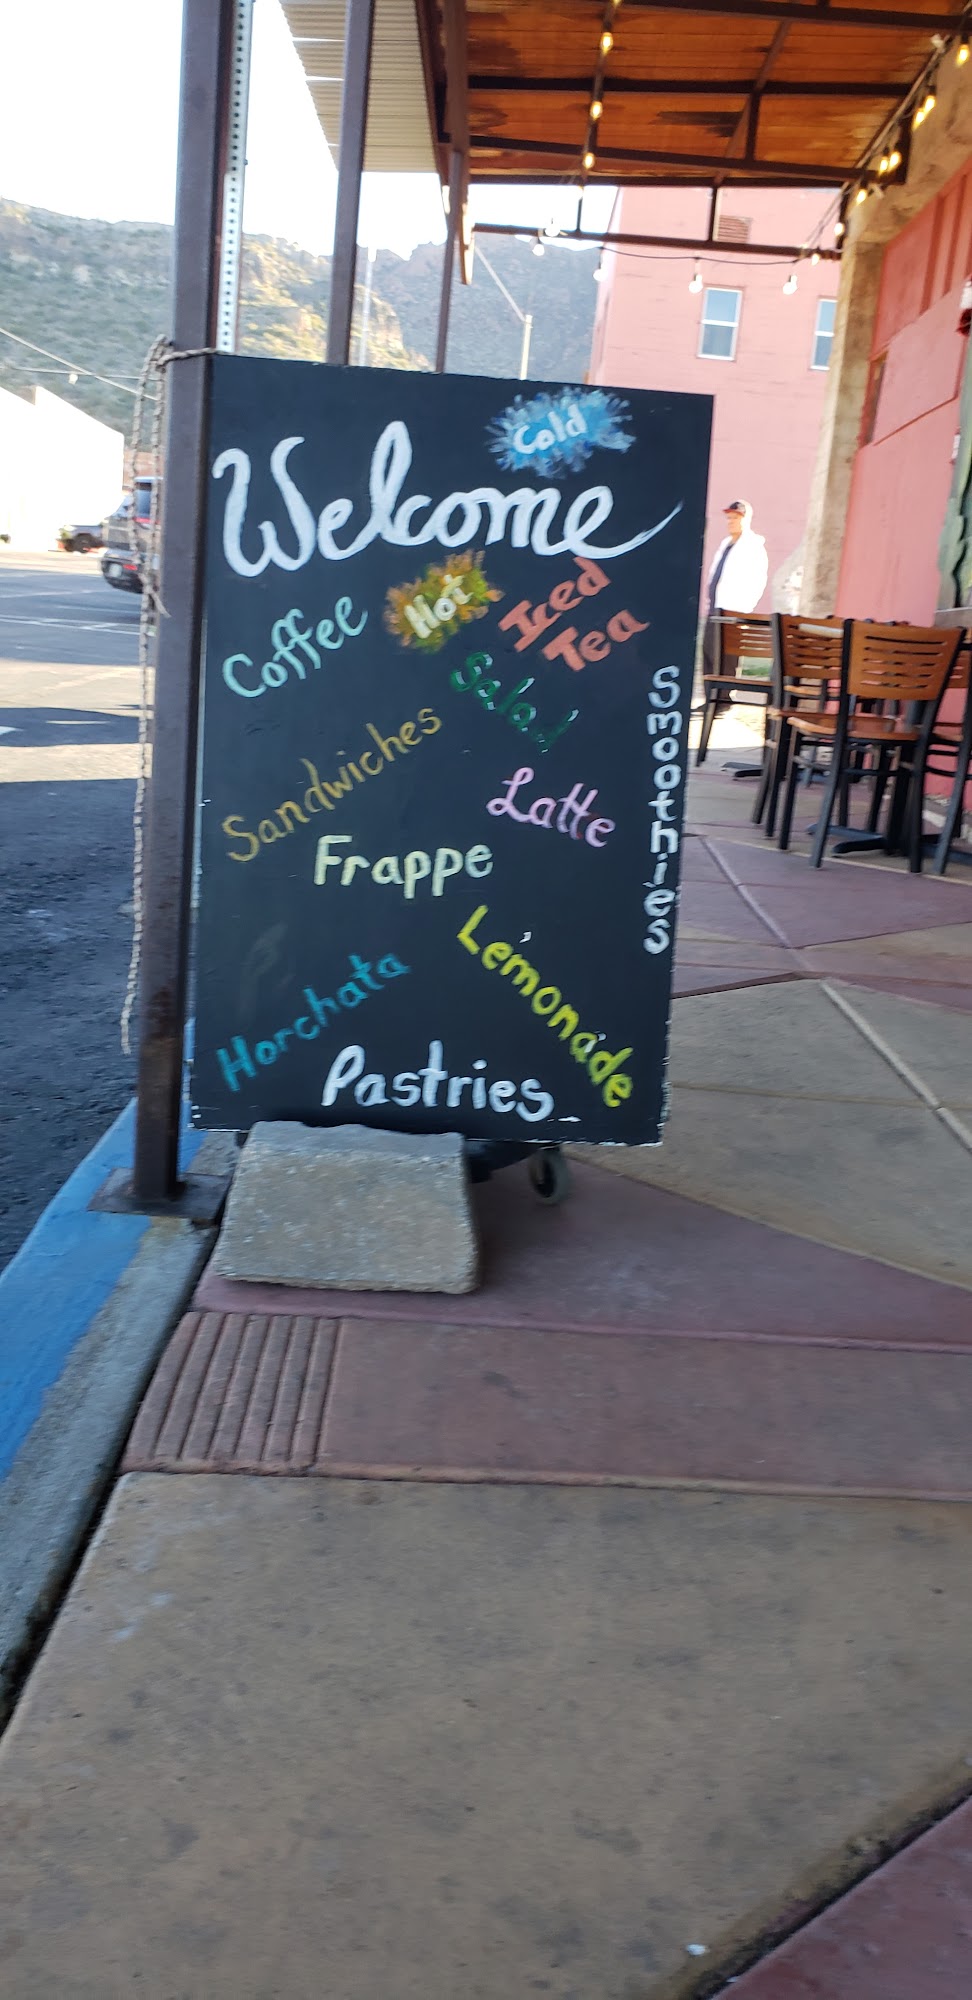 Cold
Welcome
Hot
Coffee
Iced
Tea
Salad
Smoothies
Sandwiches
Latte
Frappe
Lemonade
Horchata
Pastries